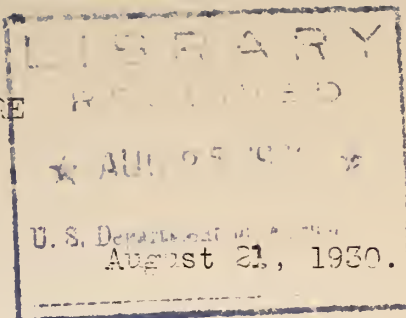 LIBRARY
RE
RECEIVED
★ AUG ★
U. S. Department
August 21, 1930.